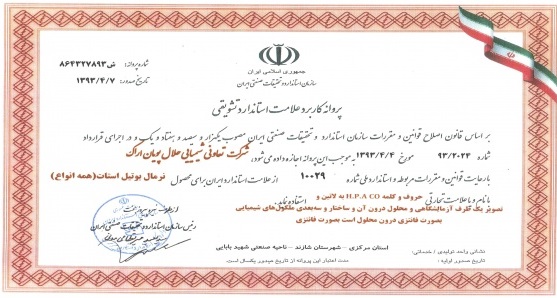 جمهوری اسلامی ایران
سازمان استاندارد و تحقیقات صنعتی ایران
شماره پروانه: ش ۸۶۴۳۲۷۸۹۳
تاریخ صدور: ۱۳۹۳/۴/۷
پروانه کاربرد علامت استاندارد تشویقی
بر اساس قانون اصلاح قوانین و مقررات سازمان استاندارد و تحقیقات صنعتی ایران مصوب یکهزار و سیصد و هفتاد و یک و در اجرای قرارداد
شماره ۹۳/۲۰۲۴ مورخ ۱۳۹۳/۴/۴ به موجب این پروانه اجازه داده می شود، شرکت تعاونی شیمیایی حلال پویان اراک
با رعایت قوانین و مقررات مربوطه و استاندارد ملی شماره ۱۰۰۲۹ از علامت استاندارد ایران برای محصول نرمال بوتیل استات (همه انواع)
با نام و یا علامت تجارتی حروف و کلمه H.P.A CO به لاتین و استفاده نماید.
تصویر یک ظرف آزمایشگاهی و محلول درون آن و ساختار و سه‌بعدی ملکول‌های شیمیایی
بصورت فانتزی درون محلول است بصورت فانتزی
رئیس سازمان استاندارد و تحقیقات صنعتی ایران
نشانی واحد تولیدی / خدماتی: استان مرکزی - شهرستان شازند - ناحیه صنعتی شهید بابایی
مدت اعتبار این پروانه از تاریخ صدور یکسال است.